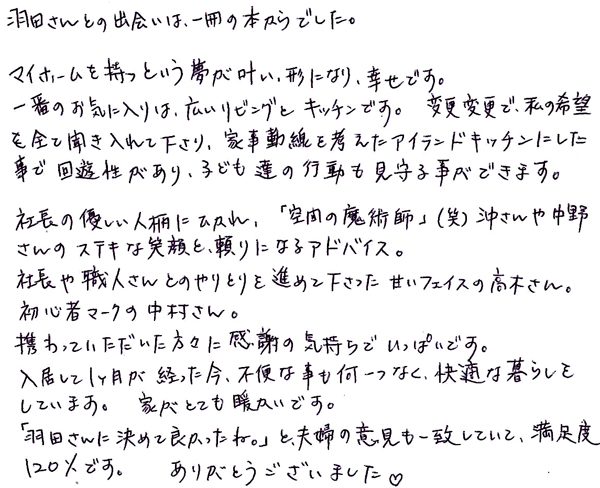 羽田さんとの出会いは、一冊の本からでした。
マイホームを持つという夢が叶い、形になり、幸せです。
一番のお気に入りは、広いリビングと キッチンです。 変更変更で、私の希望
を全て聞き入れて下さり、家事動線を考えたアイランドキッチンにした
事で 回遊性があり、子ども達の行動も見守る事ができます。
社長の優しい人柄にひかれ、「空間の魔術師」(笑)沖さんや中野
さんのステキな笑顔と、頼りになるアドバイス。
社長や職人さんとのやりとりを進めて下さった 甘いフェイスの高木さん。
初心者マークの中村さん。
携わっていただいた方々に感謝の気持ちでいっぱいです。
入居して1ヶ月が経った今、不便な事も何一つなく、快適な暮らしを
しています。 家がとても暖かいです。
「羽田さんに決めて良かったね。」と、夫婦の意見も一致していて、満足度
120%です。 ありがとうございました♡